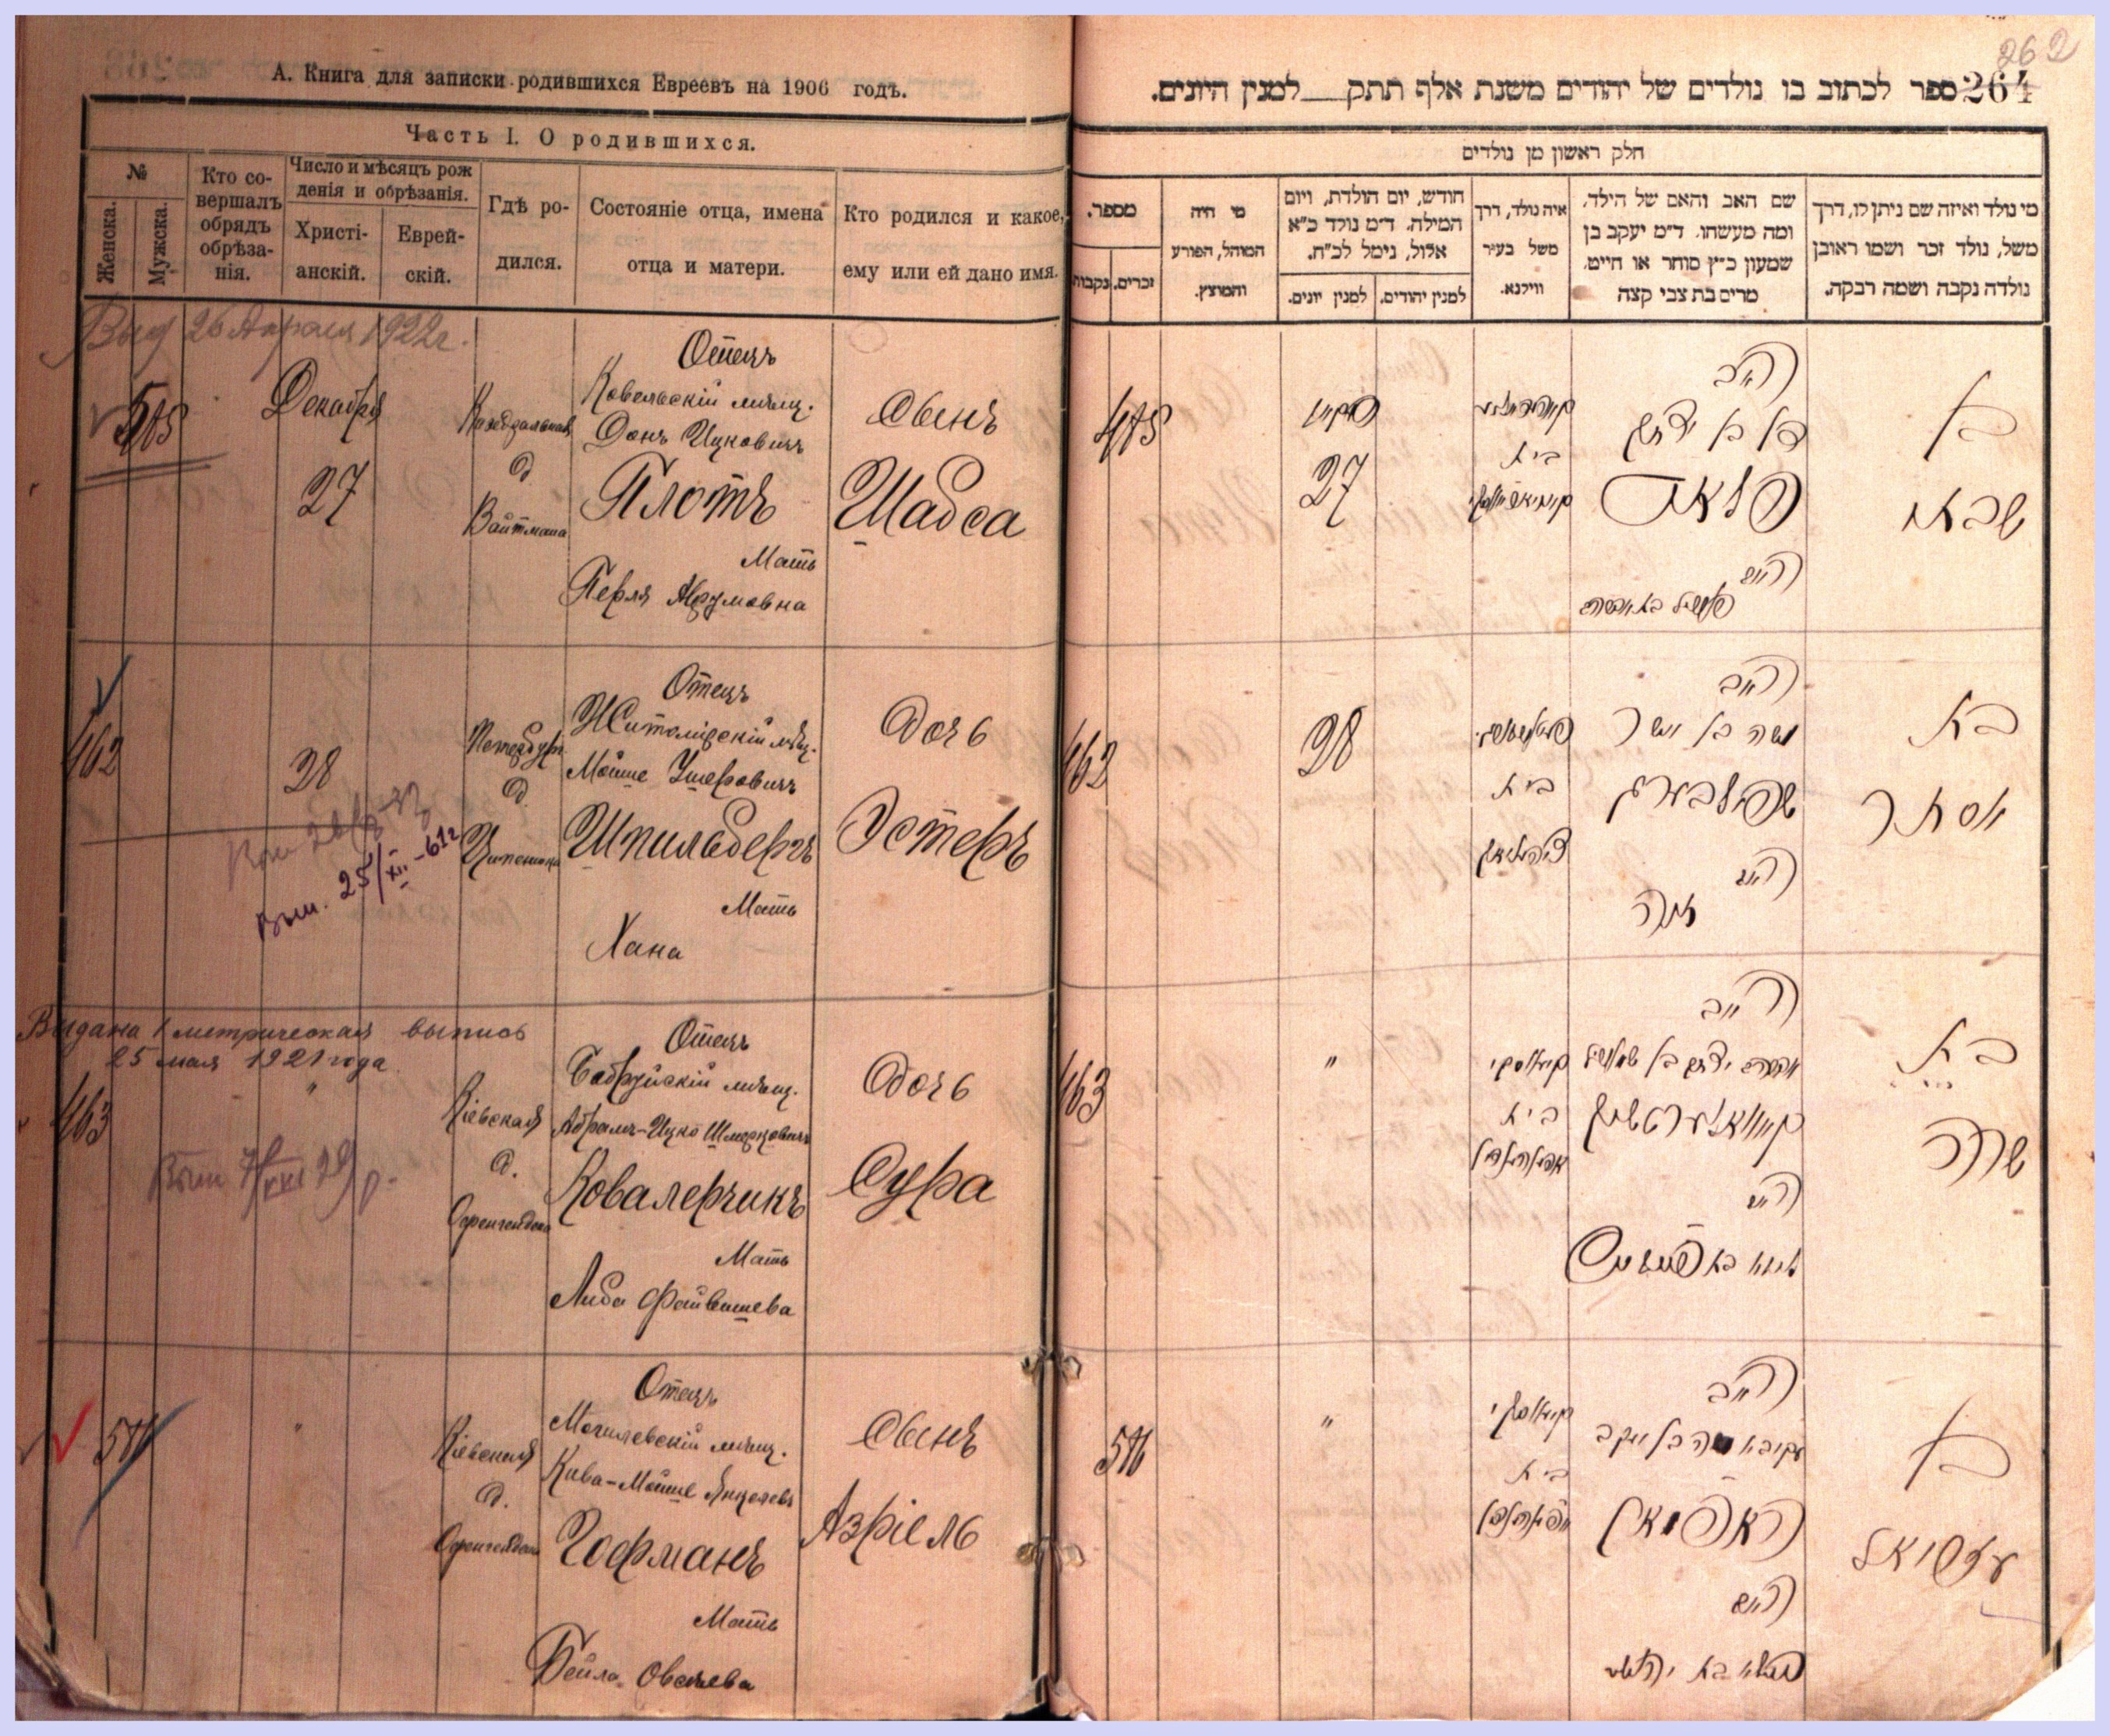 А. Книга для записки родившихся Евреевъ на 1906 годъ.
Часть I. О родившихся.
№
Женска.
Мужска.
Кто со-
вершалъ
обрядъ
обрѣза-
нія.
Число и мѣсяцъ рож
денія и обрѣзанія.
Христі-
анскій.
Еврей-
скій.
Гдѣ ро-
дился.
Состояніе отца, имена
отца и матери.
Кто родился и какое,
ему или ей дано имя.
Выд 26 Апреля 1922г.
Декабря
27
д
Вайтмана
Отецъ
Ковельскій мѣщ.
Донъ Ицковичъ
Плотъ
Мать
Перля Абрумовна
Сынъ
Шабса
462
28
Вып. 25/XII-61г
д.
Отецъ
Житомірскій мѣщ.
Мойше Ушеровичъ
Шпильбергъ
Мать
Хана
Дочь
Эстеръ
Выдана 1 метрическая выпись
25 мая 1921 года
463
"
Кіевская
д.
Отецъ
Бобруйскій мѣщ.
Абрамъ-Ицко Шмерковичъ
Ковалерчикъ
Мать
Либа Файвишева
Дочь
Сура
"
Кіевская
д.
Отецъ
Могилевскій мѣщ.
Кива-Мойше Янкелевъ
Гофманъ
Мать
Бейла Овсеева
Сынъ
Азріель
262
264
ספר לכתוב בו נולדים של יהודים משנת אלף תתק__ למנין היונים.
חלק ראשון מן נולדים
מי נולד ואיזה שם ניתן לו, דרך
משל, נולד זכר ושמו ראובן
נולדה נקבה ושמה רבקה.
שם האב והאם של הילד,
ומה מעשהו. ד״מ יעקב בן
שמעון כ״ץ סוחר או חייט,
מרים בת צבי קצה
איה נולד, דרך
משל בעיר
ווילנא.
חודש, יום הולדת, ויום
המילה. ד״מ נולד כ״א
אלול, נימל לכ״ח.
למנין יהודים.
למנין יונים.
מי היה
המוהל, הפורע
והמוצץ.
מספר.
זכרים.
נקבות
בן
שבתי
האב
דן בן יצחק
פלאט
האם
בית
27
בת
אסתר
האב
משה בן אשר
שפילבערג
האם
חנה
בית
28
462
בת
שרה
האב
אברהם יצחק בן שמערל
קאוואלערטשיק
האם
ליבא בת פייוויש
קיעווסקי
בית
"
463
בן
עזריאל
האב
עקיבא משה בן יעקב
האפמאן
האם
ביילא בת יהושע
קיעווסקי
בית
"